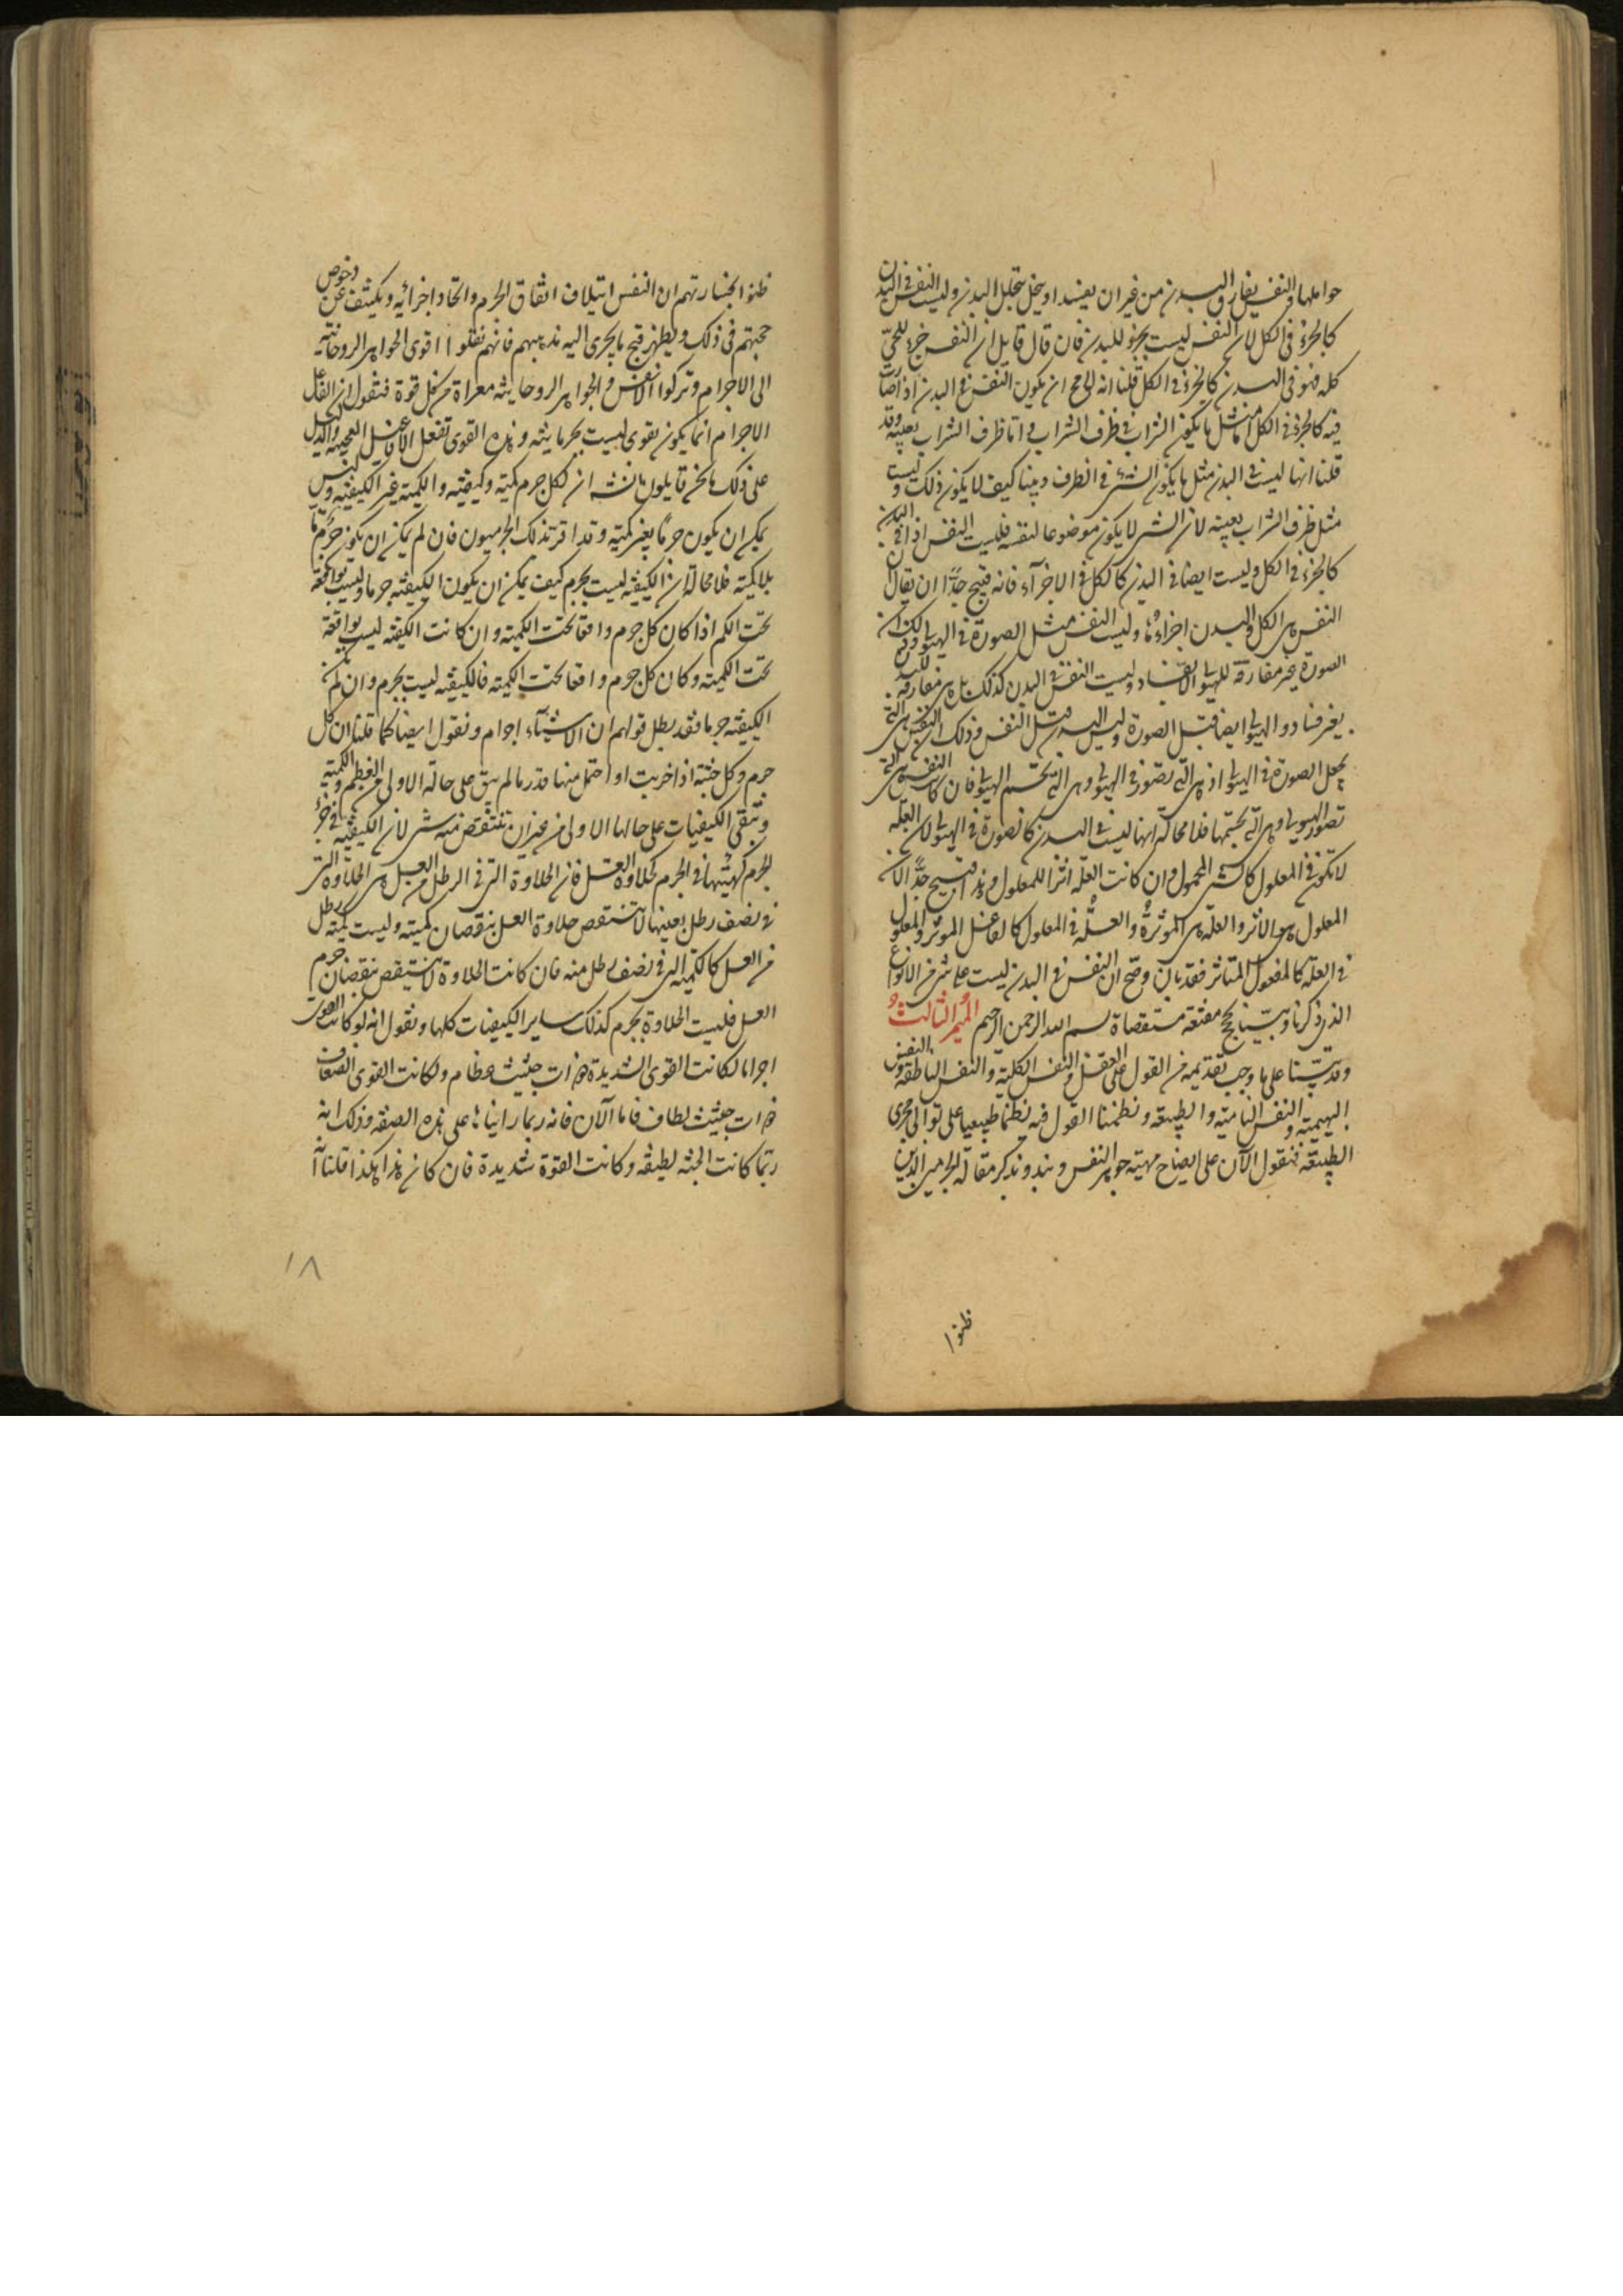 حواملها والنفس يفارق البدن من غير ان يفسد او ينحل بتحلل البدن وليست النفس في البدن
كالجزء في الكل لان النفس ليست بجزء للبدن فان قال قايل ان النفس جزء للحى
كله فهو في البدن كالجزء في الكل قلنا انه لا مح ان يكون النفس في البدن اذا صارت
فيه كالجزء في الكل اما مثل ما يكون الشراب في ظرف الشراب واما ظرف الشراب بعينه وقد
قلنا انها ليست في البدن مثل ما يكون الشىء في الظرف وبينا كيف لا يكون ذلك وليست
مثل ظرف الشراب بعينه لان الشىء لا يكون موضوعا لنفسه فليست النفس اذا في البدن
كالجزء في الكل وليست ايضا في البدن كالكل في الاجزآء فانه قبيح جدًا ان يقال ان
النفس هى الكل والبدن اجزاءها وليست النفس مثل الصورة في الهيولى وذلك ان
الصورة غير مفارقة للهيولى الا بفساد وليست النفس في البدن كذلك بل هى مفارقة للبدن
بغير فساد والهيولى ايضا قبل الصورة وليس البدن قبل النفس وذلك ان النفس هى التى
تجعل الصورة في الهيولى اذ هى التى تصور في الهيولى وهى التى تجسم الهيولى فان كانت النفس هى التى
تصور الهيولى وهى التى تجسمها فلا محالة انها ليست في البدن كالصورة في الهيولى لان العلة
لا تكون في المعلول كالشىء المحمول وان كانت العلة اثرا للمعلول وهذا قبيح جدًا لان
المعلول هو الاثر والعلة هى المؤثرة والعلة في المعلول كالفاعل المؤثر والمعلول
في العلة كالمفعول المتاثر فقد بان وصح ان النفس في البدن ليست على شىء من الانواع
الذى ذكرنا وبينا بحجج مقنعة مستقصاة بسم الله الرحمن الرحيم الميمر الثالث
وقد بينا على ما وجب تقديمه من القول على العقل والنفس الكلية والنفس الناطقة والنفس
البهيمية والنفس النامية والطبيعة ونظمنا القول فيه نظما طبيعيا على توالى مجرى
الطبيعة فنقول الآن على ايضاح مهية جوهر النفس ونبدو نذكر مقالة الجرميين الذين
ظنوا
ظنوا بخسارتهم ان النفس ايتلاف اتفاق الجرم واتحاد اجزائه ونكشف عن دحوض
حجتهم في ذلك ويظهر قبح ما يجرى اليه مذهبهم فانهم نقلوا اقوى الجواهر الروحانية
الى الاجرام وتركوا الانفس والجواهر الروحانية معراة من كل قوة فنقول ان افاعيل
الاجرام انما يكون بقوى ليست بجرمانية وهذه القوى تفعل الافاعيل العجيبة والدليل
على ذلك ما نحن قايلون انشاء الله ان لكل جرم كمية وكيفية والكمية غير الكيفية وليس
يمكن ان يكون جرمًا بغير كمية وقد اقر بذلك الجرميون فان لم يمكن ان يكون جرم ما
بلا كمية فلا محالة ان الكيفية ليست بجرم كيف يمكن ان يكون الكيفية جرما وليست بواقعة
تحت الكم اذا كان كل جرم واقعا تحت الكمية وان كانت الكيفية ليست بواقعة
تحت الكمية وكان كل جرم واقعا تحت الكمية فالكيفية ليست بجرم وان لم تكن
الكيفية جرما فقد بطل قولهم ان الاشيآء اجرام ونقول ايضا كما قلنا ان كل
جرم وكل جثة اذا جزيت او احتمل منها قدر ما لم يبق على حاله الاولى من العظم والكمية
وتبقى الكيفيات على حالها الاولى من غير ان تنتقص منه شىء لان الكيفية في جزء
الجرم كهيئتها في الجرم كحلاوة العسل فان الحلاوة التى في الرطل من العسل هى الحلاوة التى
في نصف رطل بعينها لا تنتقص حلاوة العسل بنقصان كميته وليست كمية رطل
من العسل كالكمية التى في نصف رطل منه فان كانت الحلاوة لا تنتقص بنقصان جرم
العسل فليست الحلاوة بجرم كذلك ساير الكيفيات كلها ونقول انه لو كانت القوى
اجراما لكانت القوى الشديدة ذوات جثث عظام ولكانت القوى الضعاف
ذوات جثث لطاف فاما الآن فانه ربما راينا ما على هذه الصفة وذلك انه
ربما كانت الجثة لطيفة وكانت القوة شديدة فان كان هذا هكذا قلنا انه
١٨